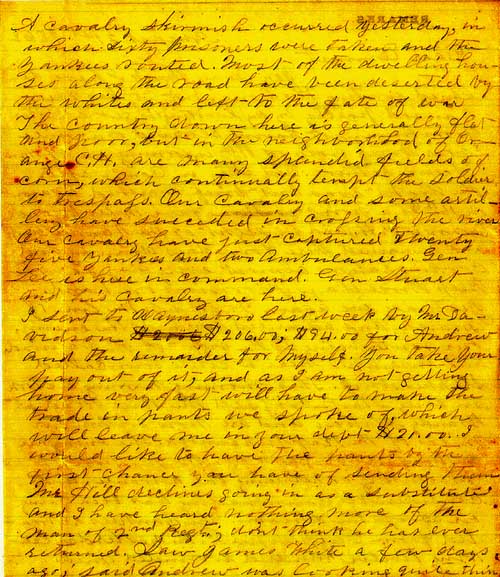 A cavalry skirmish occurred yesterday, in
which sixty prisoners were taken and the
Yankees routed. Most of the dwelling hou-
ses along the road have been deserted by
the whites and left to the fate of war
The country down here is generally flat
and poor, but in the neighborhood of Or-
ange C.H. are many splendid fields of
corn, which continually tempt the soldier
to trespass. Our Cavalry and some artil-
lery have succeeded in crossing the river
Our cavalry have just captured Twenty
five Yankees and two Ambulances. Gen
Lee is here in command. Gen Stuart
and his Cavalry are here.
I sent to Waynesboro last week by Mr Da-
vidson $206.00; $94.00 for Andrew
and the remainder for myself. You take your
pay out of it, and as I am not getting
home very fast will have to make the
trade in pants we spoke of, which
will leave me in your debt $21.00. I
would like to have the pants by the
first chance you have of sending them
Mr Hill declines going in as a substitute
and I have heard nothing more of the
man of 2nd Regt; don't think he has ever
returned. Saw James White a few days
ago; said Andrew was looking quite thin